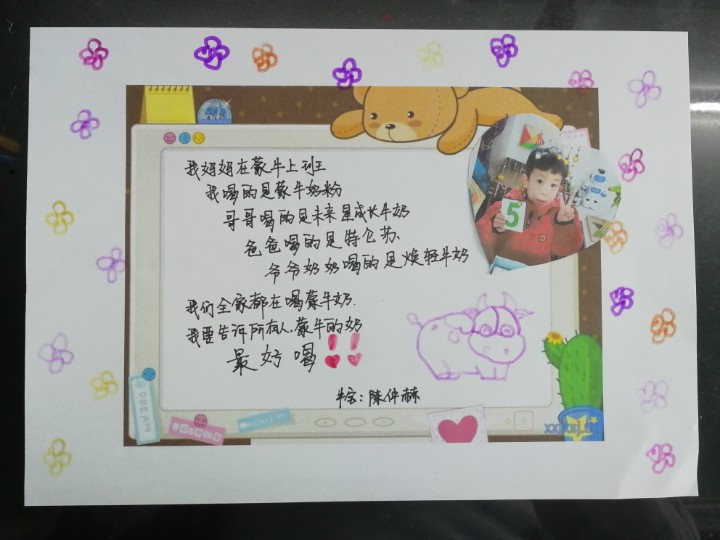 我妈妈在蒙牛上班
我喝的是蒙牛奶粉
哥哥喝的是未来星成长牛奶
爸爸喝的是特仑苏
爷爷奶奶喝的是焕轻牛奶
我们全家都在喝蒙牛奶.
我要告诉所有人,蒙牛的奶
最好喝!!
5
DREAM